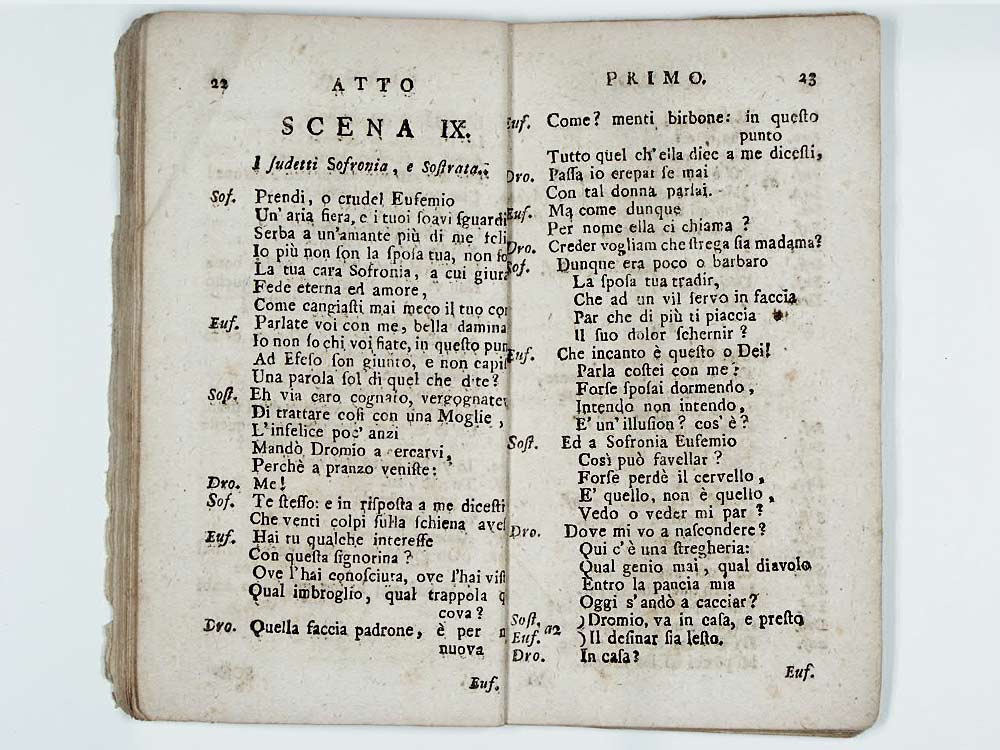 22 ATTO
SCENA IX.
I ſudetti Sofronia, e Soſtrata.
Sof. Prendi, o crudel Eufemio
Un' aria fiera, e i tuoi ſoavi ſguardi
Serba a un'amante più di me
Io più non ſon la ſpoſa tua, non
La tua cara Sofronia, a cui
Fede eterna ed amore,
Come cangiaſti mai meco il tuo
Euf. Parlate voi con me, bella damina
Io non ſo chi voi ſiate, in queſto
Ad Efeſo ſon giunto, e non
Una parola ſol di quel che dite?
Soſt. Eh via caro cognato,
Di trattare così con una Moglie,
L'infelice poc' anzi
Mandò Dromio a cercarvi,
Perchè a pranzo veniſte:
Dro. Me!
Sof. Te ſteſſo: e in riſpoſta a me diceſti
Che venti colpi ſulla ſchiena
Euf. Hai tu qualche intereſſe
Con queſta ſignorina?
Ove l'hai conoſciuta, ove l'hai
Qual imbroglio, qual trappola
cova?
Dro. Quella faccia padrone, è per
nuova
Euf.
PRIMO. 23
Euf. Come? menti birbone: in queſto
punto
Tutto quel ch'ella dice a me diceſti,
Dro. Paſſa io crepar ſe mai
Con tal donna parlai.
Euf. Ma come dunque
Per nome ella ci chiama?
Dro. Creder vogliam che ſtrega ſia madama?
Sof. Dunque era poco o barbaro
La ſpoſa tua tradir,
Che ad un vil ſervo in faccia
Par che di più ti piaccia
Il ſuo dolor ſchernir?
Euf. Che incanto è queſto o Dei!
Parla coſtei con me?
Forſe ſpoſai dormendo,
Intendo non intendo,
E' un'illuſion? cos'è?
Soſt. Ed a Sofronia Eufemio
Così può favellar?
Forſe perdè il cervello,
E' quello, non è quello,
Vedo o veder mi par?
Dro. Dove mi vo a naſcondere?
Qui c'è una ſtregheria:
Qual genio mai, qual diavolo
Entro la pancia mia
Oggi s'andò a cacciar?
Soſt. )Dromio, va in caſa, e preſto
Euf. a2 )Il deſinar ſia leſto.
Dro. In caſa?
Euf.